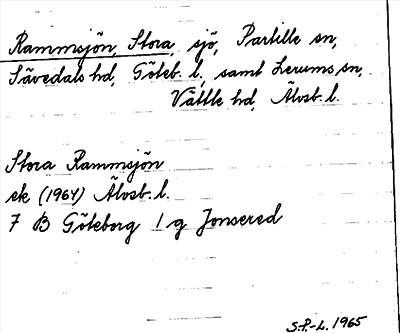 Rammsjön, Stora, sjö, Partille sn,
Sävedals hd, Göteb. l., samt Lerums sn,
Vättle hd, Älvsb. l.
Stora Rammsjön
ek (1964) Älvsb. l.
7 B Göteborg 1 g Jonsered
S.P.-L. 1965